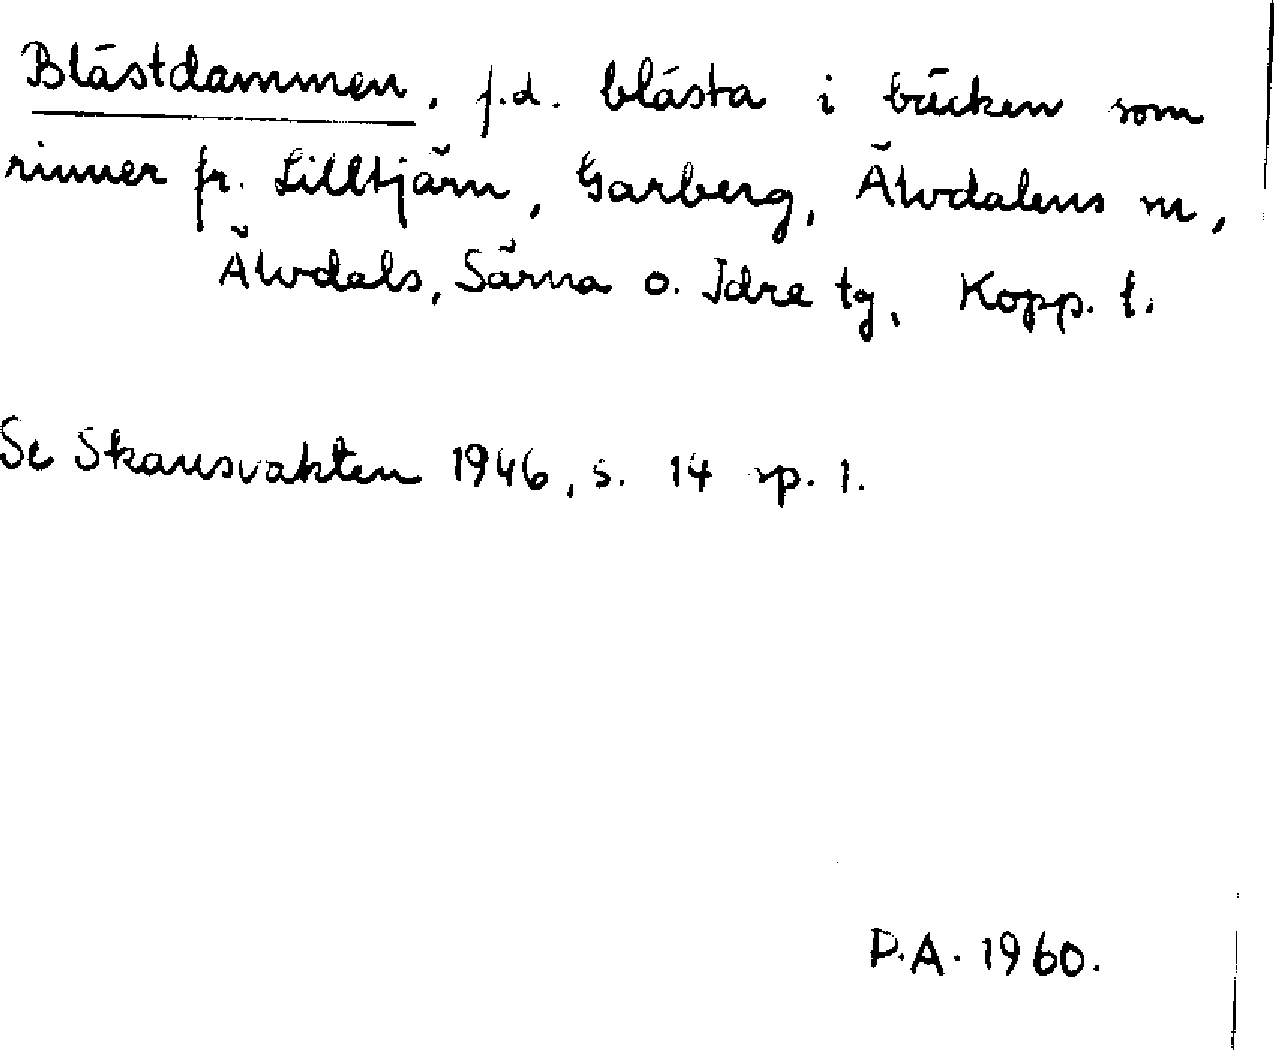 Blästdammen, f.d. blästa i bäcken som
rinner fr. Lilltjärn, Garberg, Älvdalens sn,
Älvdals, Särna o. Idre tg, Kopp. l.
Se Skansvakten 1946, s. 14 sp. 1.
D.A. 1960.